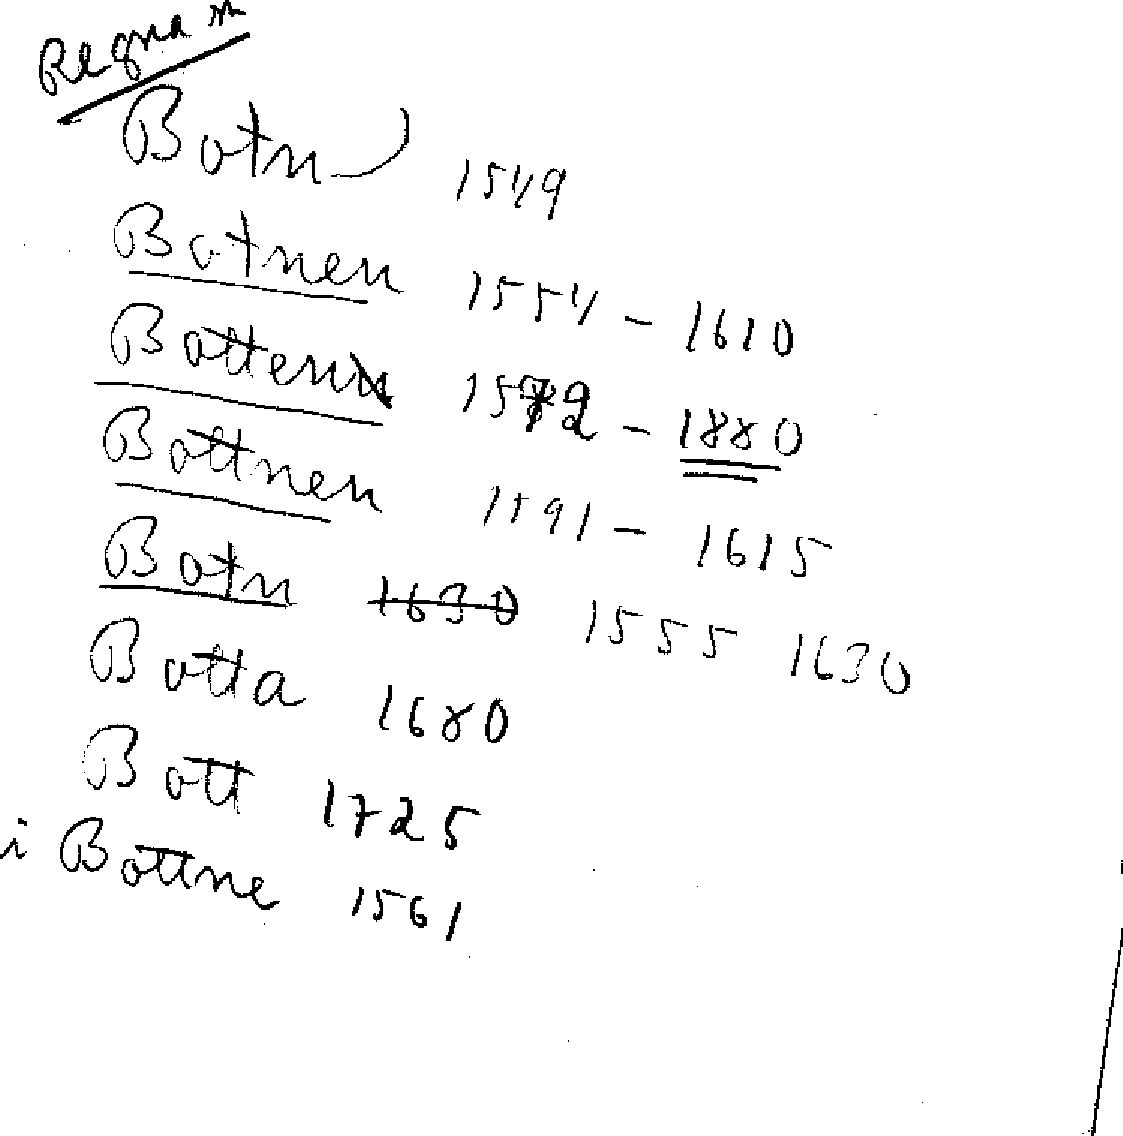 Regna sn
Botn) 1549
Botnen 1554 - 1610
Botten 1572 - 1880
Bottnen 1591 - 1615
Botn 1630 1555 1630
Botta 1680
Bott 1725
i Bottne 1561